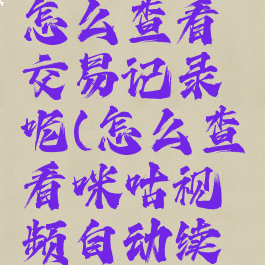 怎么查看
交易记录
呢(怎么查
看咪咕视
频自动续